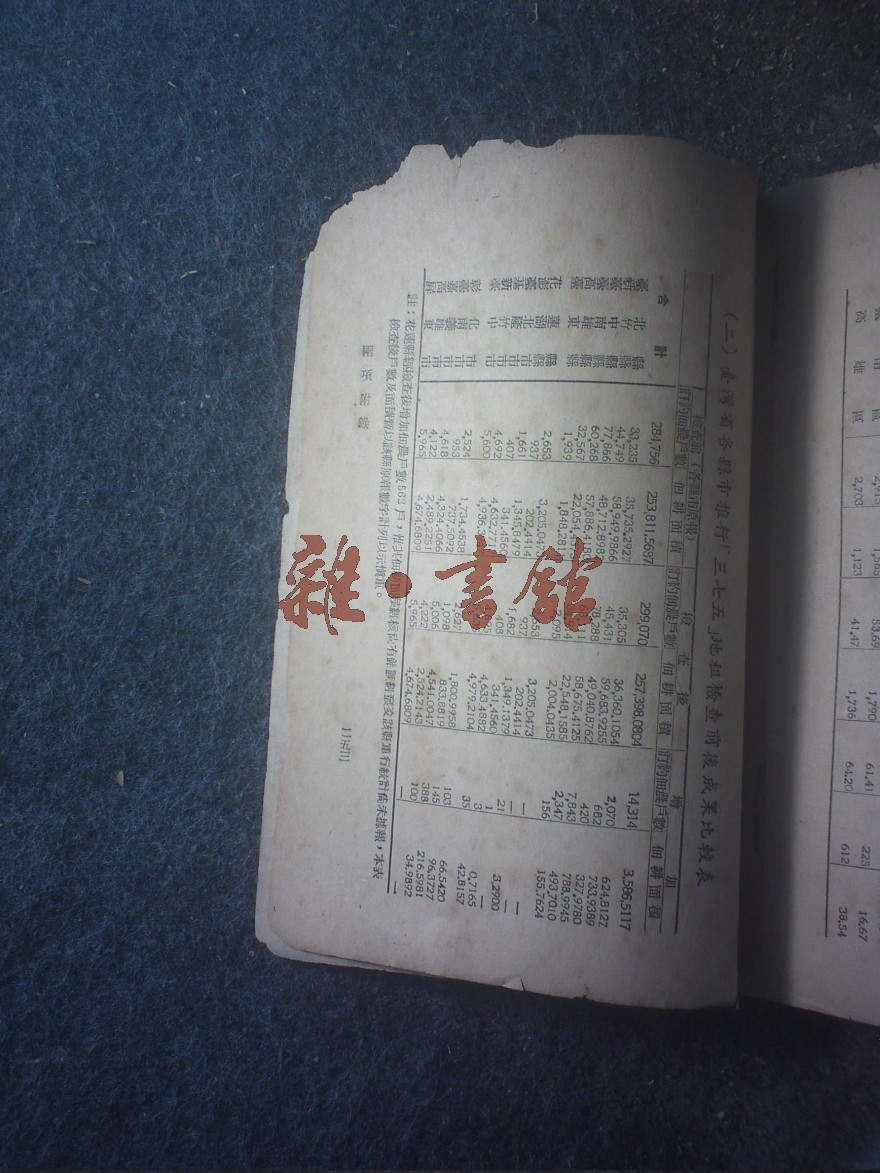 南區 2,915 1,565 53.69 1,790 61.41 225 16.67
高雄區 2,703 1,123 41.47 1,736 64.20 612 38.54
(二)臺灣省各縣市推行「三七五」地租檢查前後成果比較表
檢查前(各縣市原報) 檢查後 增加
訂約佃農戶數 佃耕面積 訂約佃農戶數 佃耕面積 訂約佃農戶數 佃耕面積
合計 284,756 253,811.5697 299,070 257,398.0804 14,314 3,586.5117
臺北縣 33,235 35,735.2927 35,305 36,360.1054 2,070 624.8127
新竹縣 44,749 58,949.9866 45,431 59,683.9255 682 733.9389
臺中縣 77,866 48,712.8982 78,288 49,040.8762 420 327.9780
臺南縣 60,268 57,886.4180 58,675.4125 7,843 788.9945
高雄縣 32,567 22,054.4575 22,548.1585 2,347 493.7010
臺東縣 1,939 1,848.2811 2,095 2,004.0435 156 155.7624
花蓮縣 2,653 3,205.0473 2,653 3,205.0473 — —
澎湖縣 937 202.4414 937 202.4414 — —
臺北市 1,661 1,345.8479 1,682 1,349.1379 21 3.2900
基隆市 407 341.4560 408 341.4560 1 —
新竹市 4,692 4,632.7717 4,695 4,633.4882 3 0.7165
臺中市 5,600 4,979.2104 35 42.8157
彰化市 2,524 1,734.4538 2,627 1,800.9958 103 66.5420
臺南市 953 737.5092 1,098 833.8819 145 96.3727
嘉義市 4,618 4,324.4066 5,006 4,541.0047 388 216.5981
高雄市 4,122 2,489.2251 4,222 2,524.2143 100 34.9892
屏東市 5,965 4,674.6809 5,965 4,674.6809 — —
註:花蓮縣經檢查後增加佃農戶數562戶,惟其佃耕面積尚未據報,本表
檢查後戶數及面積暫以該縣原報數字計列以示慎重。
雜·書館